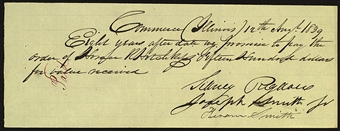 Commerce (Illinois) 12th Augt. 1839
Eight years after date we promise to pay the
order of Horace R Hotchkiss Fifteen Hundred dollars
for value received
Sidney Rigdon
Joseph Smith Jr
Hiram Smith